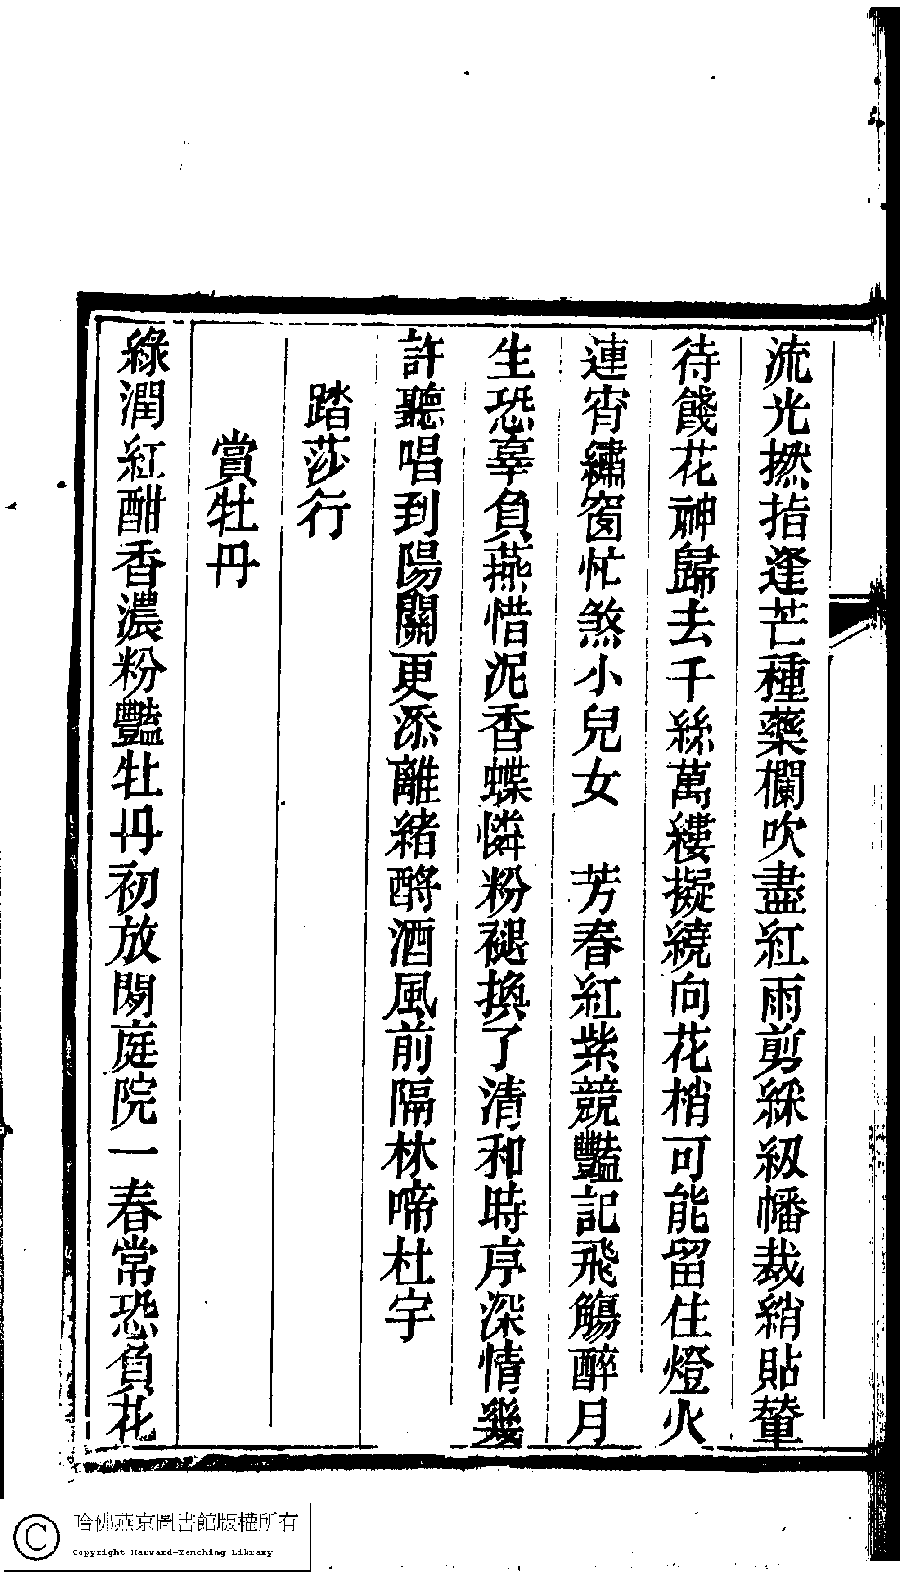 流光撚指逢芒種藥欄吹盡紅雨剪綵級幡裁綃貼輦
待餞花神歸去千絲萬縷擬繞向花梢可能留住燈火
連宵繡窗忙煞小兒女　芳春紅紫競豔記飛觴醉月
生恐辜負燕惜泥香蝶憐粉褪換了清和時序深情幾
許聽唱到陽關更添離緒酹酒風前隔林啼杜宇
踏莎行
賞牡丹
綠潤紅酣香濃粉豔牡丹初放閒庭院一春常恐負花
哈佛燕京圖書館版權所有
Copyright Harvard-Yenching Library